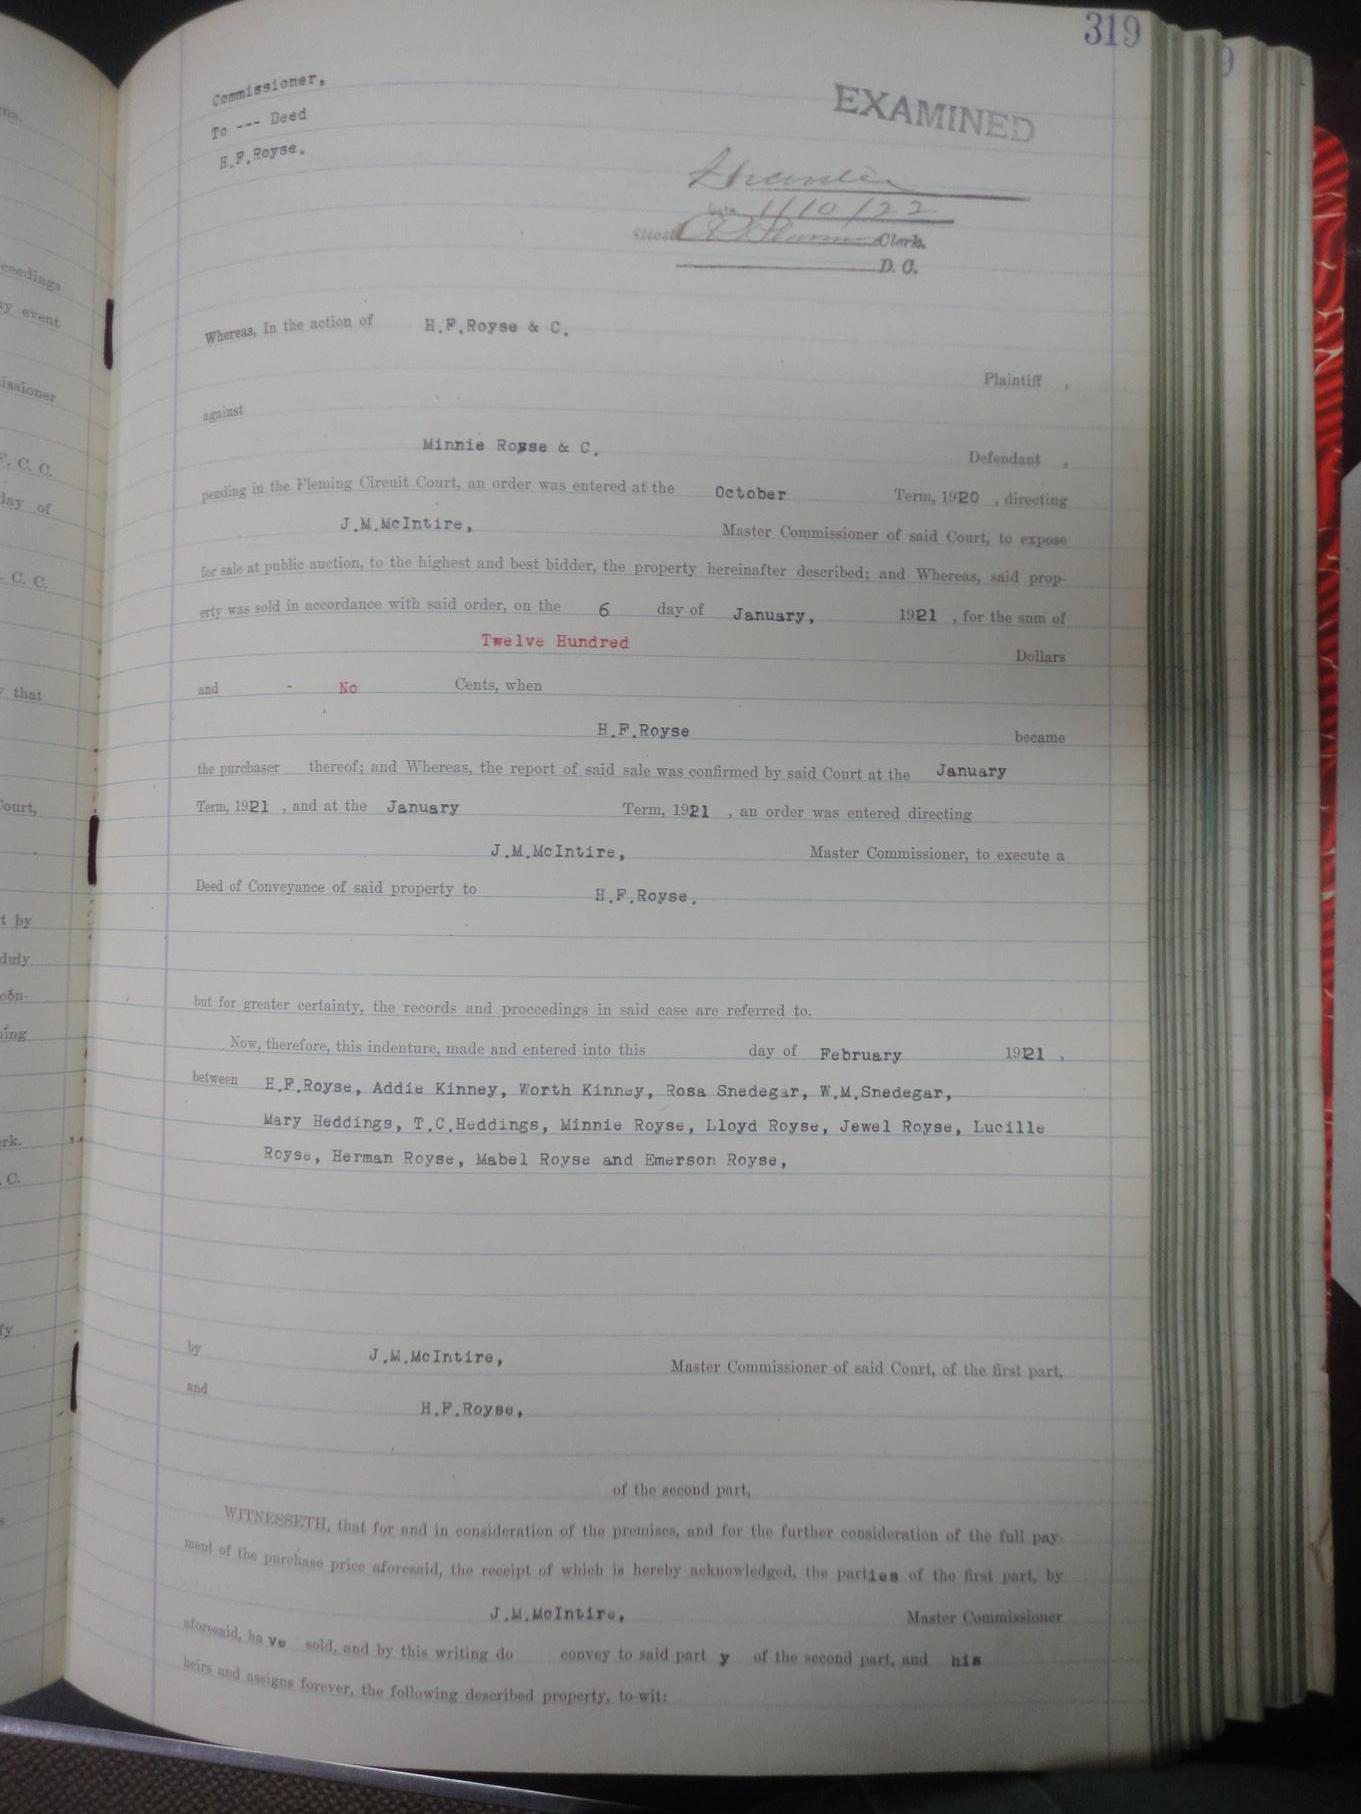 319
Commissioner,
To --- Deed
H.F.Royse.
EXAMINED
Date 1/10/22
Clerk.
D. C.
Whereas, In the action of H.F.Royse & C.
Plaintiff ,
against
Minnie Royse & C.
Defendant ,
pending in the Fleming Circuit Court, an order was entered at the October Term, 1920 , directing
J.M.McIntire, Master Commissioner of said Court, to expose
for sale at public auction, to the highest and best bidder, the property hereinafter described; and Whereas, said prop-
erty was sold in accordance with said order, on the 6 day of January, 1921 , for the sum of
Twelve Hundred Dollars
and - No Cents, when
H.F.Royse became
the purchaser thereof; and Whereas, the report of said sale was confirmed by said Court at the January
Term, 1921 , and at the January Term, 1921 , an order was entered directing
J.M.McIntire, Master Commissioner, to execute a
Deed of Conveyance of said property to H.F.Royse.
but for greater certainty, the records and proceedings in said case are referred to.
Now, therefore, this indenture, made and entered into this day of February 1921 ,
between H.F.Royse, Addie Kinney, Worth Kinney, Rosa Snedegar, W.M.Snedegar,
Mary Heddings, T.C.Heddings, Minnie Royse, Lloyd Royse, Jewel Royse, Lucille
Royse, Herman Royse, Mabel Royse and Emerson Royse,
by J.M.McIntire, Master Commissioner of said Court, of the first part,
and
H.F.Royse,
of the second part,
WITNESSETH, that for and in consideration of the premises, and for the further consideration of the full pay-
ment of the purchase price aforesaid, the receipt of which is hereby acknowledged, the parties of the first part, by
J.M.McIntire, Master Commissioner
aforesaid, have sold, and by this writing do convey to said part y of the second part, and his
heirs and assigns forever, the following described property, to-wit: